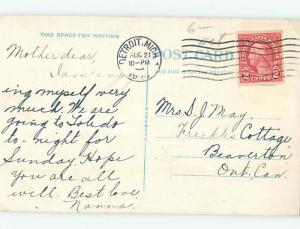 THIS SPACE FOR WRITING
DETROIT, MICH
AUG 21
10-PM
POST CARD
2 CENTS 2
Mother dear,
I am enjoy
ing myself very
much. We are
going to Toledo
to-night for
Sunday. Hope
you are all
well. Best love
Nanna.
Mrs D. J. May.
Cottage
Beaverton
Ont. Can.